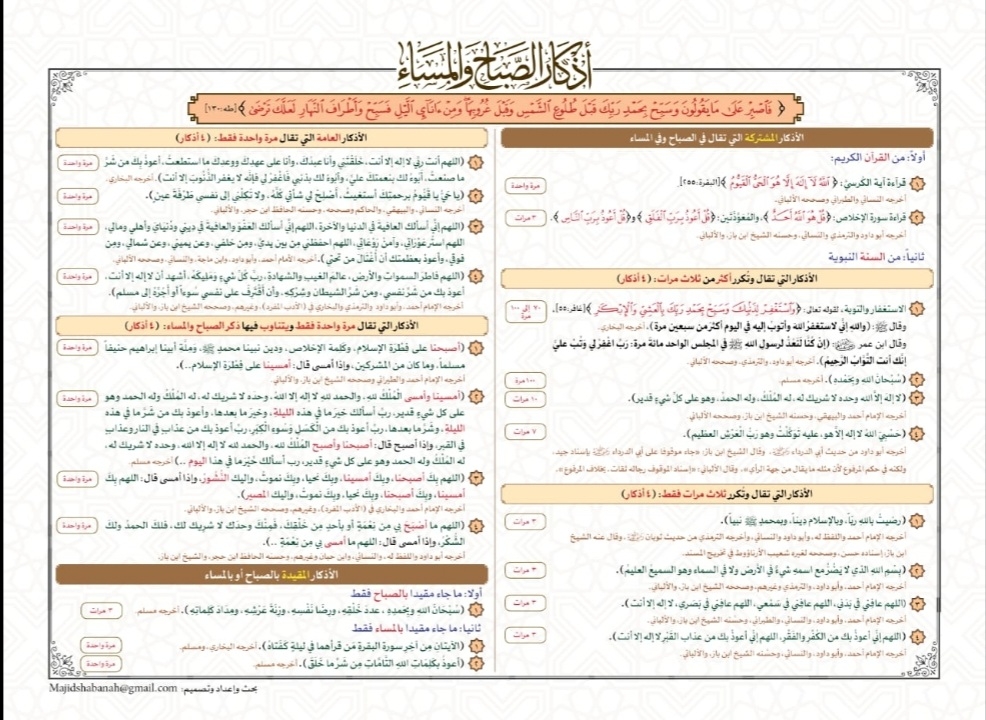 أذكار الصباح والمساء
﴿ فَاصْبِرْ عَلَىٰ مَا يَقُولُونَ وَسَبِّحْ بِحَمْدِ رَبِّكَ قَبْلَ طُلُوعِ الشَّمْسِ وَقَبْلَ غُرُوبِهَا وَمِنْ آنَاءِ اللَّيْلِ فَسَبِّحْ وَأَطْرَافَ النَّهَارِ لَعَلَّكَ تَرْضَىٰ ﴾ [طه:١٣٠]
الأذكار المشتركة التي تقال في الصباح وفي المساء
أولاً: من القرآن الكريم:
١ قراءة آية الكرسيّ: ﴿ اللَّهُ لَا إِلَٰهَ إِلَّا هُوَ الْحَيُّ الْقَيُّومُ ﴾ [البقرة:٢٥٥]. مرة واحدة
أخرجه النسائي والطبراني وصححه الألباني.
٢ قراءة سورة الإخلاص: ﴿قُلْ هُوَ اللَّهُ أَحَدٌ ﴾، والمعوّذتين: ﴿قُلْ أَعُوذُ بِرَبِّ الْفَلَقِ ﴾ و﴿قُلْ أَعُوذُ بِرَبِّ النَّاسِ ﴾. ٣ مرات
أخرجه أبو داود والترمذي والنسائي، وحسنه الشيخ ابن باز، والألباني.
ثانياً: من السنة النبوية
الأذكار التي تقال وتُكرر أكثر من ثلاث مرات: (٤ أذكار)
١ الاستغفار والتوبة، لقوله تعالى: ﴿وَاسْتَغْفِرْ لِذَنْبِكَ وَسَبِّحْ بِحَمْدِ رَبِّكَ بِالْعَشِيِّ وَالْإِبْكَارِ ﴾[غافر:٥٥]. ٧٠ إلى ١٠٠ مرة
وقال ﷺ: (والله إني لأستغفر الله وأتوب إليه في اليوم أكثر من سبعين مرة). أخرجه البخاري.
وقال ابن عمر: (إن كُنَّا لَنَعُدُّ لرسول الله ﷺ في المجلس الواحد مائة مرة: ربّ اغفر لي وتُب عليّ
إنّك أنت التَّوّاب الرَّحيمُ). أخرجه أبو داود، والترمذي، وصححه الألباني.
٢ (سُبْحَانَ الله وبَحَمْدِه). أخرجه مسلم. ١٠٠ مرة
٣ (لا إله إلَّا الله وحده لا شريك له، له المُلْكُ، وله الحمدُ، وهو على كلّ شيءٍ قدير). ١٠ مرات
أخرجه الإمام أحمد والبيهقي، وحسنه الشيخ ابن باز، وصححه الألباني.
٤ (حَسْبِيَ اللهُ لا إله إلَّا هو، عليه توكَّلْتُ وهو ربُّ العَرْشِ العظيمِ). ٧ مرات
أخرجه أبو داود من حديث أبي الدرداء، وقال الشيخ ابن باز: «جاء موقوفا على أبي الدرداء بإسناد جيد،
ولكنه في حكم المرفوع لأن مثله ما يقال من جهة الرأي»، وقال الألباني: «إسناد الموقوف رجاله ثقات، بخلاف المرفوع».
الأذكار التي تقال وتُكرر ثلاث مرات فقط: (٤ أذكار)
١ (رضيتُ بالله ربّاً، وبالإسلام ديناً، وبمحمدٍ ﷺ نبياً). ٣ مرات
أخرجه الإمام أحمد واللفظ له، وأبو داود والنسائي، وأخرجه الترمذي من حديث ثوبان، وقال عنه الشيخ
ابن باز: إسناده حسن، وصححه لغيره شعيب الأرناؤوط في تخريج المسند.
٢ (بِسْمِ الله الذي لا يضُرُّ مع اسمهِ شيءٌ في الأرض ولا في السماء وهو السميعُ العليمُ). ٣ مرات
أخرجه الإمام أحمد، وأبو داود، والترمذي وغيرهم، وصححه الشيخ ابن باز، والألباني.
٣ (اللهم عافِني في بَدَني، اللهم عافِني في سَمْعي، اللهم عافِني في بَصَري، لا إله إلَّا أنت). ٣ مرات
أخرجه الإمام أحمد، وأبو داود، والنسائي، والطبراني، وحسنه الشيخ ابن باز، والألباني.
٤ (اللهم إنّي أعوذُ بك من الكُفْرِ والفَقْرِ، اللهم إنّي أعوذُ بك من عذاب القَبْرِ لا إله إلَّا أنت). ٣ مرات
أخرجه الإمام أحمد، وأبو داود، والنسائي، وحسنه الشيخ ابن باز، والألباني.
الأذكار العامة التي تقال مرة واحدة فقط: (٤ أذكار)
١ (اللهم أنت ربّي لا إله إلا أنت، خَلَقْتَني وأنا عبدُكَ، وأنا على عهدِكَ ووعدِكَ ما استطعتُ، أعوذُ بك من شَرِّ مرة واحدة
ما صنعتُ، أبُوءُ لك بنعمتِكَ عليَّ، وأبُوءُ لك بذنبي فاغْفِر لي فإنّه لا يغفر الذُّنُوبَ إلا أنت). أخرجه البخاري.
٢ (يا حَيُّ يا قيُّومُ برحمتِكَ أستغيثُ، أصْلِحْ لي شأني كلَّهُ، ولا تَكِلْني إلى نفسي طَرْفَةَ عينٍ). مرة واحدة
أخرجه النسائي، والبيهقي، والحاكم وصححه، وحسنه الحافظ ابن حجر، والألباني.
٣ (اللهم إنّي أسألك العافيةَ في الدنيا والآخرة، اللهم إنّي أسألك العَفْوَ والعافيةَ في ديني ودُنْيَايَ وأهلي ومالي، مرة واحدة
اللهم استُر عَوْرَاتي، وآمِنْ رَوْعَاتي، اللهم احفظني من بين يديَّ، ومن خلفي، وعن يميني، وعن شمالي، ومن
فوقي، وأعوذُ بعظمتِك أن أُغْتَالَ من تحتي). أخرجه الإمام أحمد، وأبو داود، وابن ماجة، والنسائي، وصححه الألباني.
٤ (اللهم فاطرَ السمواتِ والأرضِ، عالمَ الغيبِ والشهادةِ، ربَّ كلِّ شيءٍ ومَليكَهُ، أشهدُ أن لا إله إلا أنت، مرة واحدة
أعوذُ بك من شرِّ نفسي، ومن شرِّ الشيطانِ وشِرْكِهِ، وأن أقْتَرفَ على نفسي سُوءاً أو أجُرَّهُ إلى مسلم).
أخرجه الإمام أحمد، وأبو داود والترمذي والبخاري في (الأدب المفرد)، وغيرهم، وصححه الشيخ ابن باز، والألباني.
الأذكار التي تقال مرة واحدة فقط ويتناوب فيها ذكر الصباح والمساء: (٤ أذكار)
١ (أصبحنا على فِطْرَةِ الإسلام، وكَلِمَةِ الإخلاص، ودين نبينا محمدٍ ﷺ، ومِلَّةِ أبينا إبراهيم حنيفاً مرة واحدة
مسلماً، وما كان من المشركين، وإذا أمسى قال: أمسينا على فِطْرَةِ الإسلام..).
أخرجه الإمام أحمد، والطبراني وصححه الشيخ ابن باز، والألباني.
٢ (أمسينا وأمسى المُلْكُ لله، والحمد لله لا إله إلا الله، وحده لا شريك له، له المُلْكُ وله الحمد وهو مرة واحدة
على كل شيءٍ قدير، ربِّ أسألُكَ خَيْرَ ما في هذه الليلةِ، وخيرَ ما بعدها، وأعوذ بك من شَرِّ ما في هذه
الليلةِ، وشَرِّ ما بعدها، ربِّ أعوذ بك من الكَسَلِ وسُوءِ الكِبَرِ، ربِّ أعوذ بك من عذابٍ في النار وعذابٍ
في القبر، وإذا أصبح قال: أصبحنا وأصبح المُلْكُ لله، والحمد لله لا إله إلا الله، وحده لا شريك له،
له المُلْكُ وله الحمد وهو على كل شيءٍ قدير، رب أسألك خَيْرَ ما في هذا اليوم ..) أخرجه مسلم.
٣ (اللهم بِكَ أصبَحنا، وبك أمسينا، وبك نحيا، وبك نموتُ، وإليك النُّشُور، وإذا أمسى قال: اللهم بِكَ مرة واحدة
أمسينا، وبك أصبحنا، وبك نحيا، وبك نموتُ، وإليك المصير).
أخرجه الإمام أحمد والبخاري في (الأدب المفرد)، وغيرهم، وصححه الشيخ ابن باز، والألباني.
٤ (اللهم ما أصْبَحَ بي مِن نِعْمَةٍ أو بأحدٍ مِن خَلْقِكَ، فَمِنْكَ وحدك لا شريك لك، فلك الحمدُ ولك مرة واحدة
الشُّكرُ، وإذا أمسى قال: اللهم ما أمسى بي مِن نِعْمَةٍ ..).
أخرجه أبو داود واللفظ له، والنسائي، وابن حبان وغيرهم، وحسنه الحافظ ابن حجر، والشيخ ابن باز.
الأذكار المقيدة بالصباح أو بالمساء
أولا: ما جاء مقيدا بالصباح فقط
١ (سُبْحَانَ الله وبحَمْدِهِ، عددَ خَلْقِهِ، ورِضَا نَفْسِهِ، وزِنَةَ عَرْشِهِ، ومِدَادَ كَلِمَاتِهِ). أخرجه مسلم. ٣ مرات
ثانيا: ما جاء مقيدا بالمساء فقط
١ (الآيتان مِن آخِرِ سورة البقرةِ مَن قرأهما في ليلةٍ كَفَتَاهُ). أخرجه البخاري، ومسلم. مرة واحدة
٢ (أعوذُ بكَلِمَاتِ الله التَّامَّاتِ مِن شَرِّ ما خَلَقَ). أخرجه مسلم. مرة واحدة
بحث وإعداد وتصميم: Majidshabanah@gmail.com